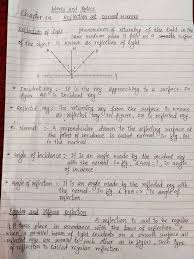 Waves and Optics
Chapter 14 Reflection at Curved Mirrors
Reflection of Light : phenomenon of returning of the light in the
same medium when it falls on a
of the object is known as reflection of light
* Incident ray : It is the ray approaching to a surface. In
figure, AO is incident ray.
* Reflected ray : The returning ray from the surface is known
as reflected ray. In figure, OB is reflected ray.
* Normal : A perpendicular drawn to the reflecting surface at
the point of incidence is called normal. In fig, ON
is the normal
* Angle of Incidence : It is an angle made by the incident ray
with the normal. In fig, ∠AON is
of incidence.
* Angle of reflection : It is an angle made by the reflected ray
with the normal. In fig, ∠
of reflection.
Regular and Diffuse Reflection
A reflection is said to be regular
if it takes place in accordance with the laws of reflection.
when a parallel beam of light incident on a smooth surface all
reflected rays are parallel to each other as in fig(i). Such type
of reflection is called regular reflection.